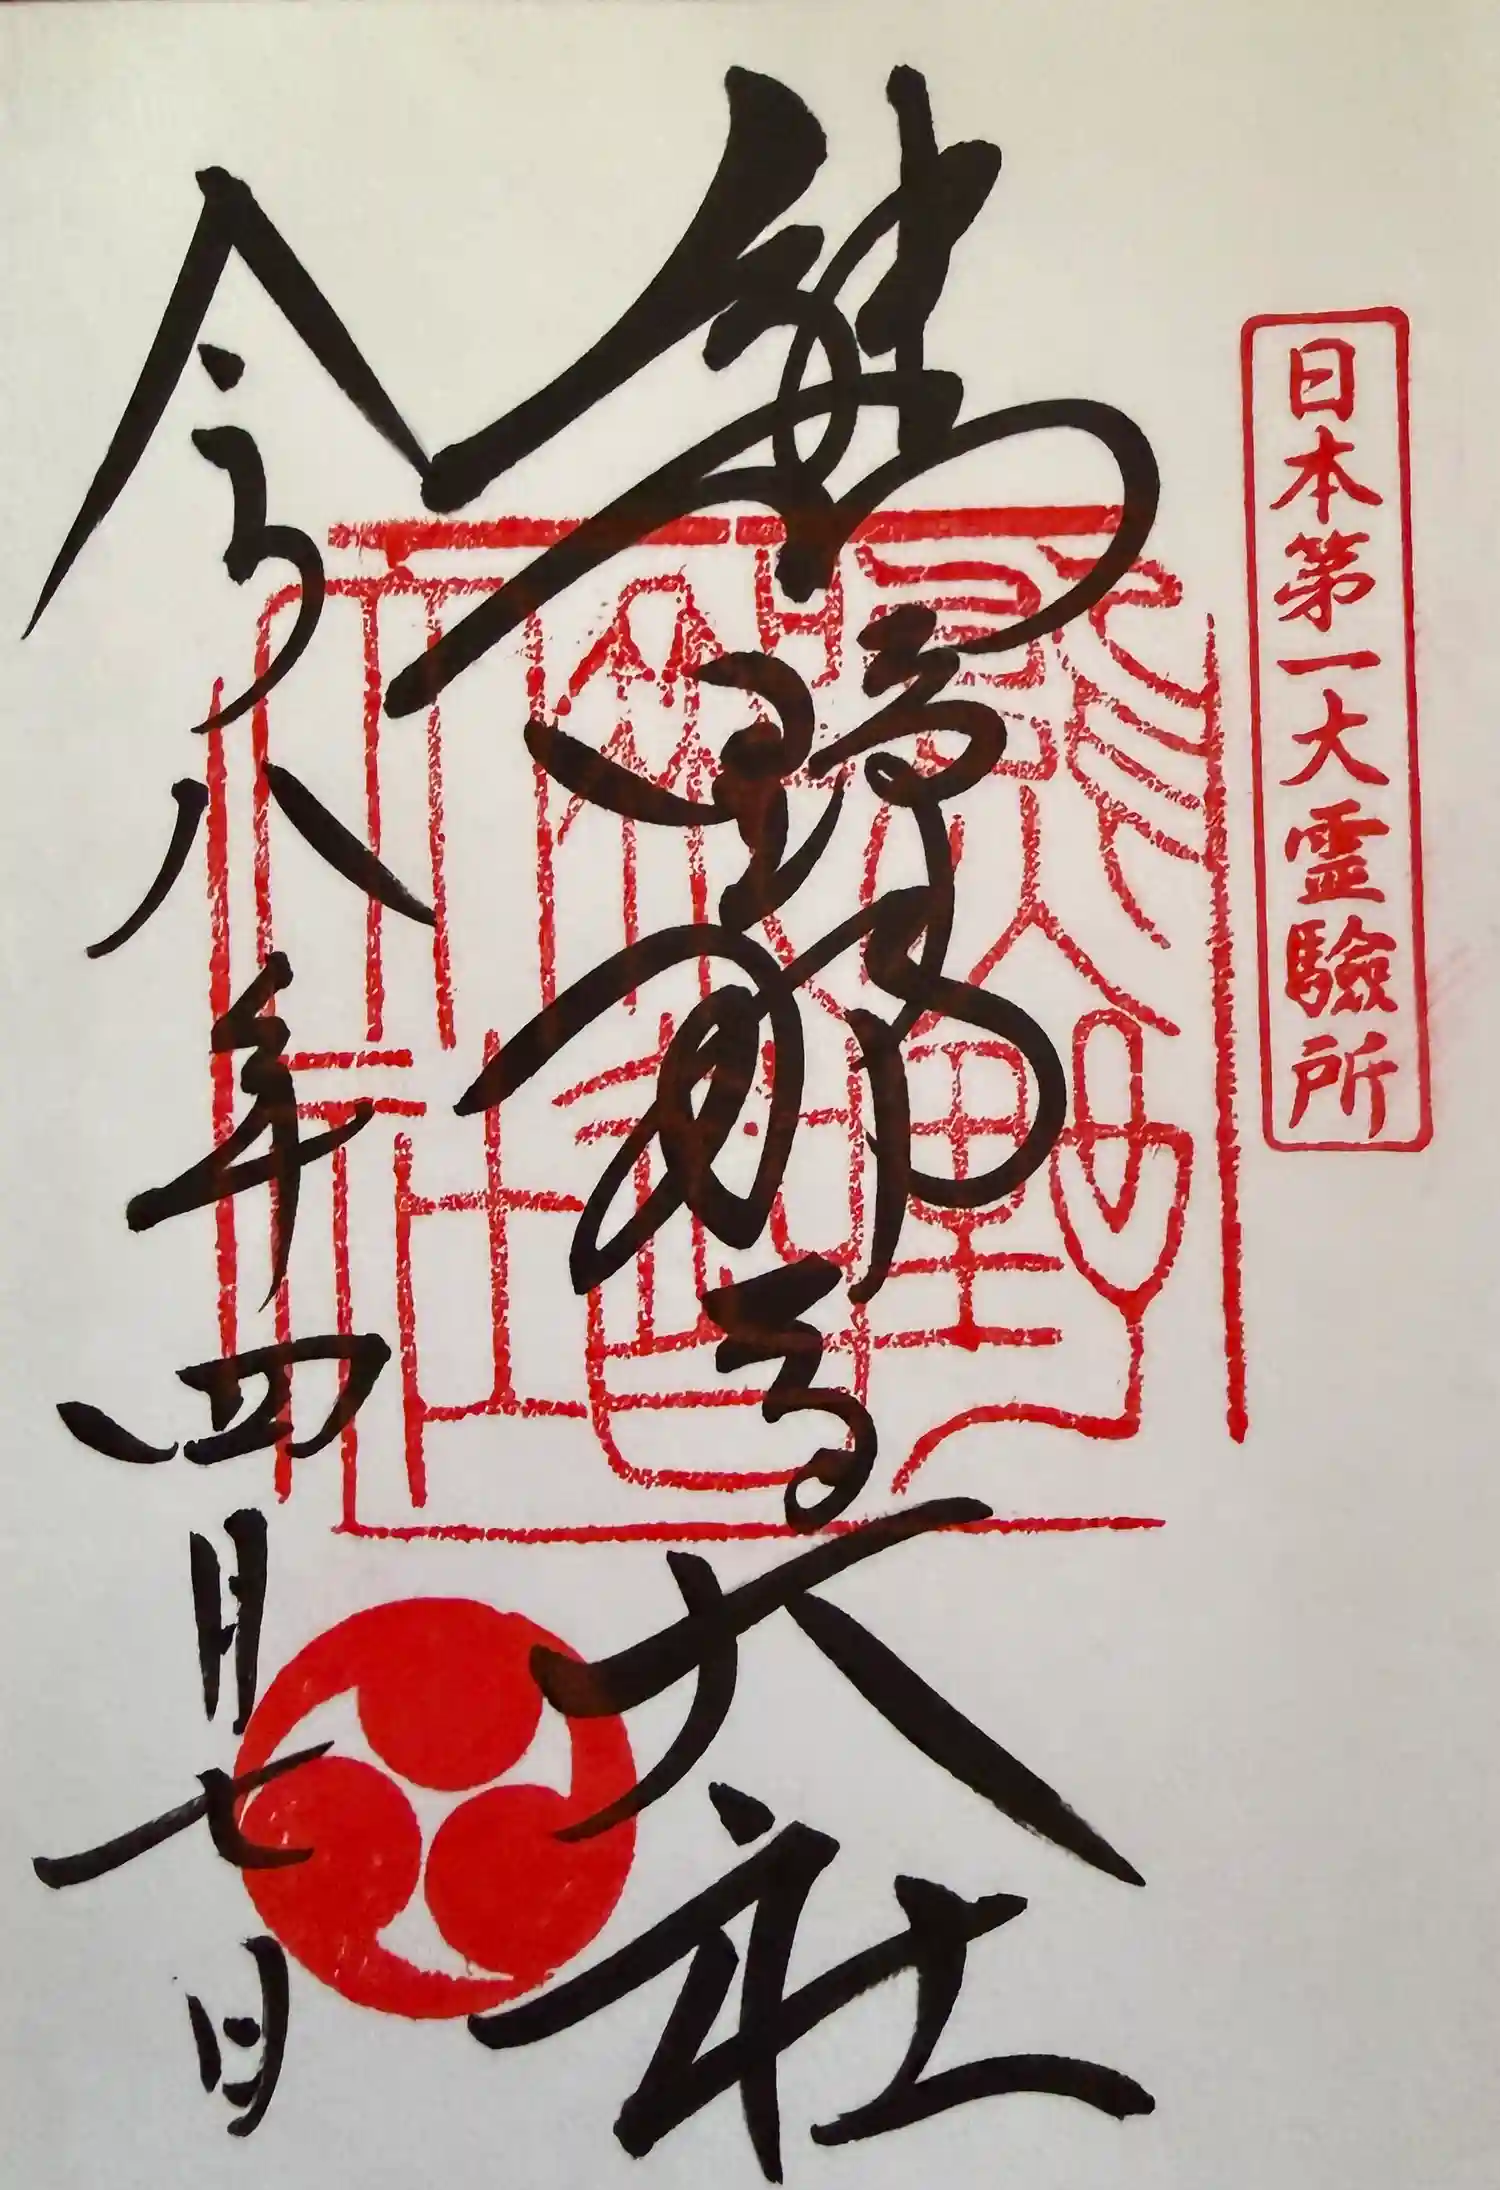 日本第一大霊驗所
熊野那智大社
令八年四月七日